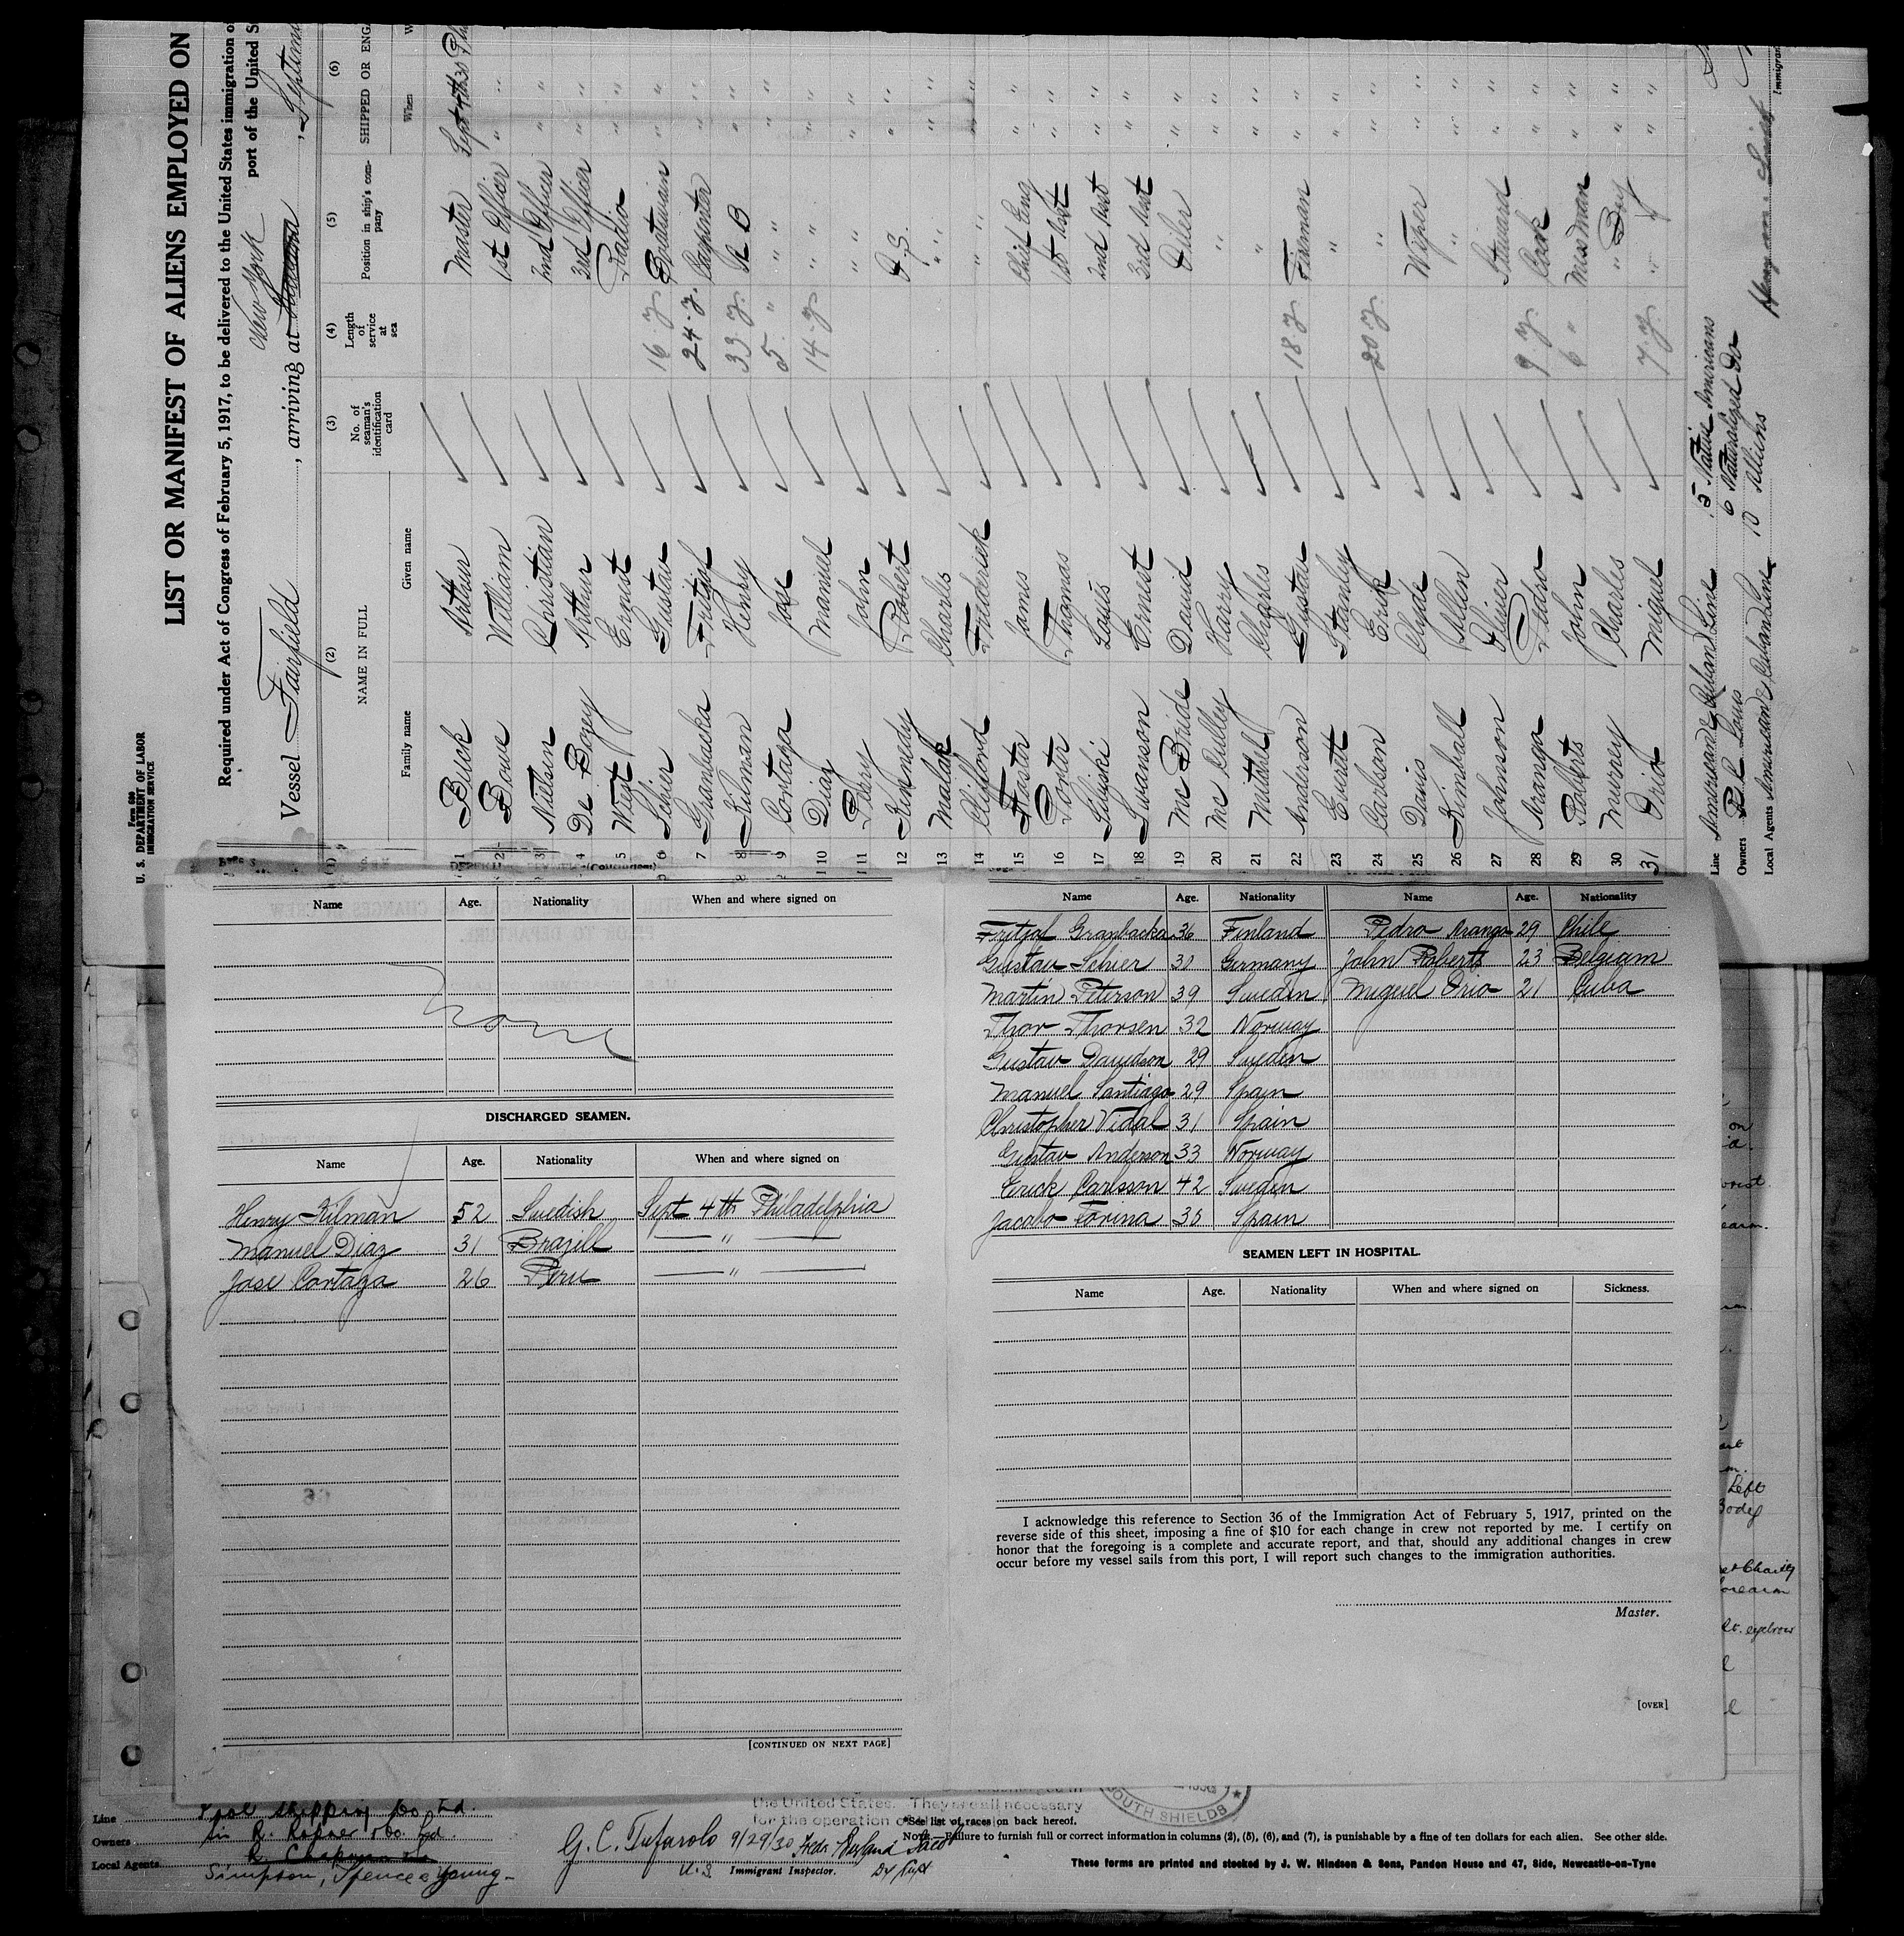 Form 680
U. S. DEPARTMENT OF LABOR
IMMIGRATION SERVICE
LIST OR MANIFEST OF ALIENS EMPLOYED ON
Required under Act of Congress of February 5, 1917, to be delivered to the United States immigration
port of the United
New York
Vessel Fairfield, arriving at Havana,
(1) (2) (3) (4) (5) (6)
NAME IN FULL
Family name Given name
No. of seaman's identification card
Length of service at sea
Position in ship's company
SHIPPED OR
When
1 Buck Arthur Master Sept 4th 30
2 Bowe William 1st Officer " "
3 Nielsen Christian 2nd Officer " "
4 De Bozey Arthur 3rd Officer " "
5 West Ernest Radio " "
6 Schier Gustav 16 y. Boatswain " "
7 Granbacka Fritjof 24 y. Carpenter " "
8 Kilman Henry 33 y. A B " "
9 Cortaza Jose 5 " " " " "
10 Diaz Manuel 14 y " " " "
11 Perry John " " " "
12 Kennedy Robert O.S. " "
13 Malak Charls " " " "
14 Clifford Frederick " " " "
15 Foster Jams Chif Eng " "
16 Porter Thomas 1st Asst " "
17 Louis 2nd Asst " "
18 Swanson Ernest 3rd Asst " "
19 Mc Bride David Oiler " "
20 Mc Culley Harry " " "
21 Mitchel Charles " " "
22 Anderson Gustav 18 y Fireman " "
23 Everett Stanley " " "
24 Carlson Erick 20 y. " " "
25 Davis Clyde Wiper " "
26 Kimball Allen " " "
27 Johnson Oliver Steward " "
28 Aranga Pedro 9 y. Cook " "
29 Roberts John 6 " Mes Man " "
30 Murney Charles " Boy " "
31 Orio Miguel 7 y. " " " "
Line American & Cuban Line 15 Native Americans
Owners 6 Naturalized Do
Local Agents American & Cuban Line 10 Aliens
Name Age. Nationality When and where signed on
None
DISCHARGED SEAMEN.
Name Age. Nationality When and where signed on
Henry Kilman 52 Swedish Sept 4th Philadelphia
Manuel Diaz 31 Brazill "
Jose Cortaza 26 Peru "
[CONTINUED ON NEXT PAGE]
Name Age. Nationality Name Age. Nationality
Fritjof Granbacka 36 Finland Pedro Aranga 29 Chile
Gustav Schier 30 Germany John Roberts 23 Belgium
Martin Peterson 39 Sweden Miguel Orio 21 Cuba
Thor Thorsen 32 Norway
Gustav Davidson 29 Sweden
Manuel Santiago 29 Spain
Christopher Vidal 31 Spain
Gustav Anderson 33 Norway
Erick Carlsson 42 Sweden
Jacobo Forina 35 Spain
SEAMEN LEFT IN HOSPITAL.
Name Age. Nationality When and where signed on Sickness.
I acknowledge this reference to Section 36 of the Immigration Act of February 5, 1917, printed on the
reverse side of this sheet, imposing a fine of $10 for each change in crew not reported by me. I certify on
honor that the foregoing is a complete and accurate report, and that, should any additional changes in crew
occur before my vessel sails from this port, I will report such changes to the immigration authorities.
Master.
[OVER]
Left
Body
forearm
Rt. eyebrow
the United States. They are all necessary
for the operation of
SOUTH SHIELDS
Line Shipping Co. Ltd.
Owners Sir R. Ropner & Co. Ltd.
Local Agents R. Chapman
Simpson, Spence & Young
G. C. Tufarolo 9/29/30
U.S. Immigrant Inspector.
*See list of races on back hereof.
Note.—Failure to furnish full or correct information in columns (2), (5), (6), and (7), is punishable by a fine of ten dollars for each alien. See other side.
These forms are printed and stocked by J. W. Hindson & Sons, Pandon House and 47, Side, Newcastle-on-Tyne